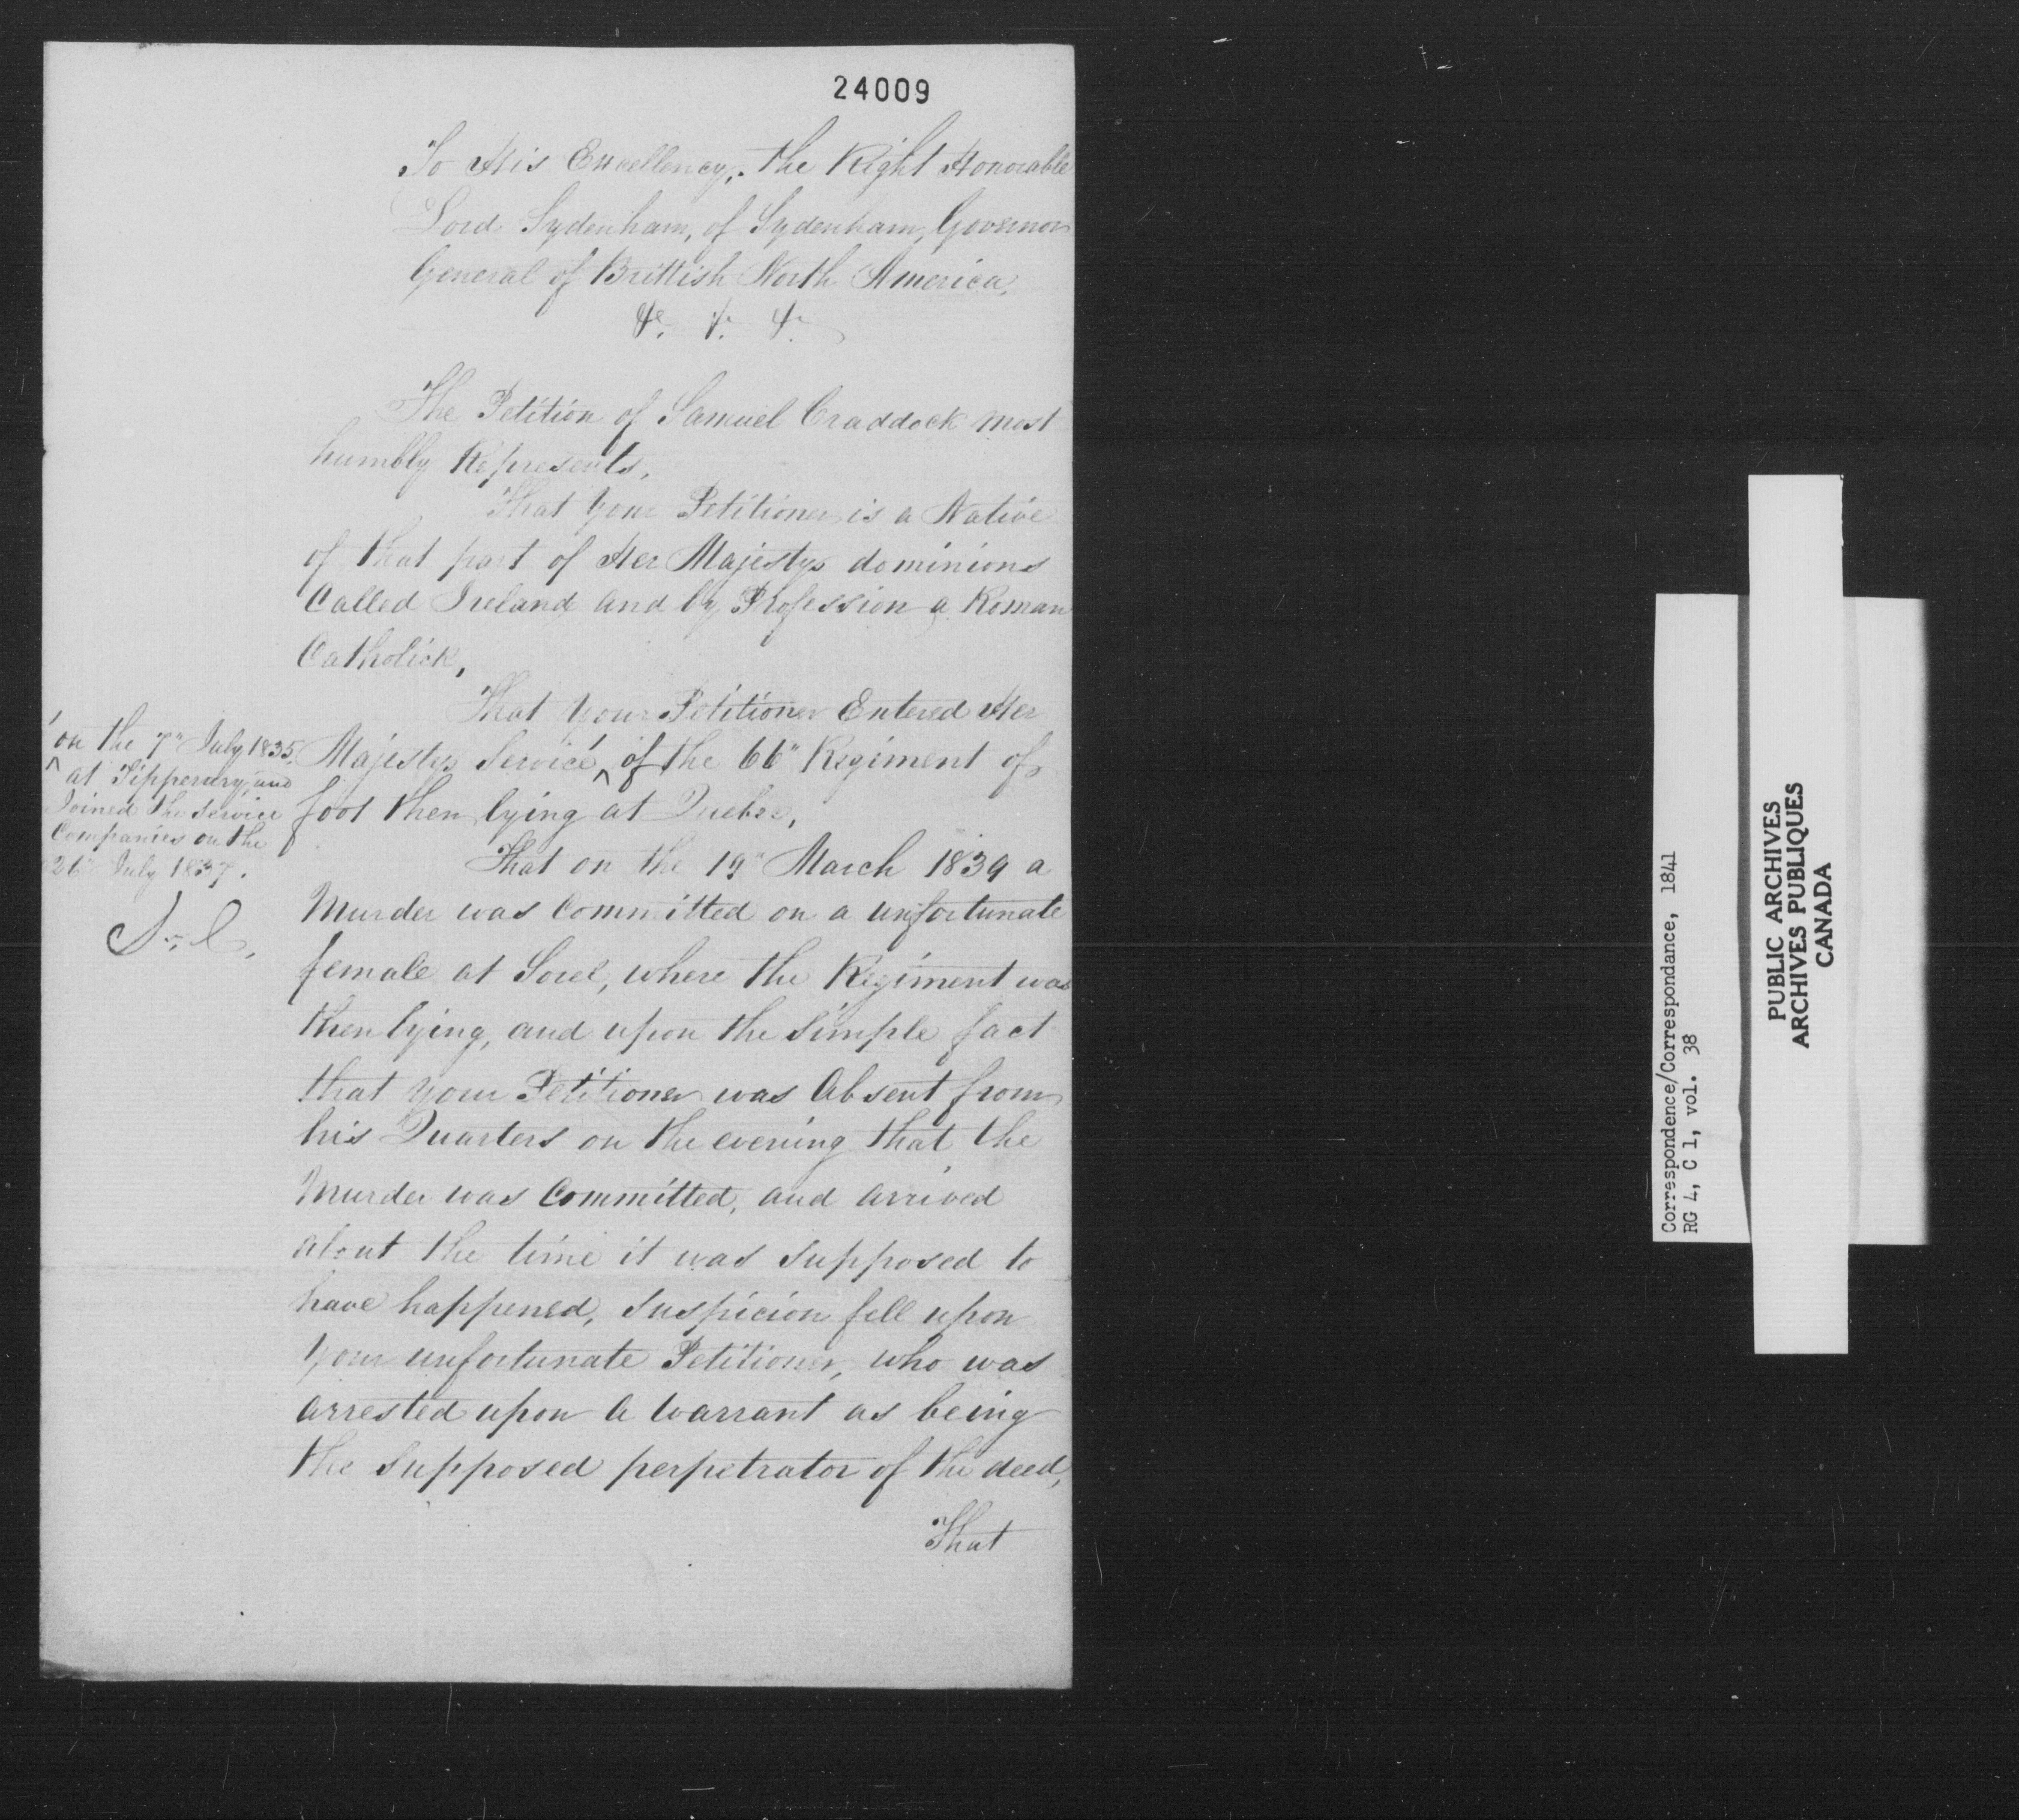 24009
To His Excellency, the Right Honorable
Lord Sydenham, of Sydenham, Governor
General of Brittish North America,
&c. &c. &c.
The Petition of Samuel Craddock most
humbly Represents,
That your Petitioner is a Native
of that part of Her Majestys dominions
Called Ireland and by Profession a Roman
Catholick,
That your Petitioner Entered Her
Majestys Service, ^ of the 66" Regiment of
foot then lying at Quebec,
^ on the 7" July 1835,
at Tipperary, and
Joined the Service
Companies on the
26" July 1837.
S. C.
That on the 19" March 1839 a
Murder was Committed on a unfortunate
female at Sorel, where the Regiment was
then lying, and upon the simple fact
that your Petitioner was Absent from
his Quarters on the evening that the
Murder was Committed, and arrived
about the time it was supposed to
have happened, suspicion fell upon
your unfortunate Petitioner, who was
arrested upon a Warrant as being
the supposed perpetrator of the deed,
That
Correspondence/Correspondance, 1841
RG 4, C 1, vol. 38
PUBLIC ARCHIVES
ARCHIVES PUBLIQUES
CANADA